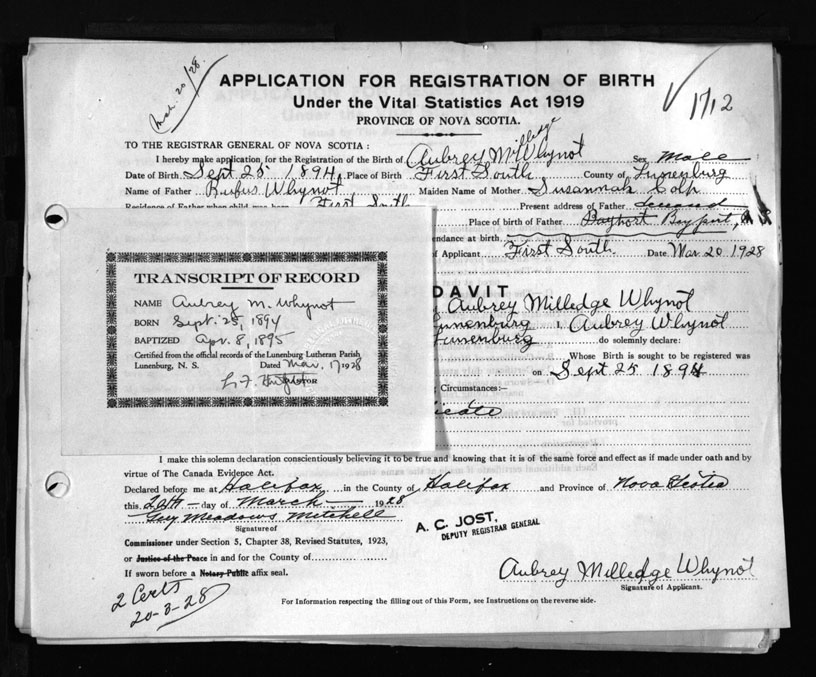 Mar. 20/28.
APPLICATION FOR REGISTRATION OF BIRTH
Under the Vital Statistics Act 1919
PROVINCE OF NOVA SCOTIA.
1712
TO THE REGISTRAR GENERAL OF NOVA SCOTIA:
I hereby make application for the Registration of the Birth of Aubrey Milledge Whynot Sex Male
Date of Birth Sept 25 1894 Place of Birth First South County of Lunenburg
Name of Father Rufus Whynot Maiden Name of Mother Susannah Colp
Residence of Father when child was born First South Present address of Father
Place of birth of Father Bayport Bayport, N S
endance at birth
of Applicant First South Date Mar 20 1928
DAVIT
Aubrey Milledge Whynot
Lunenburg I, Aubrey Whynot
Lunenburg do solemnly declare:
Whose Birth is sought to be registered was
on Sept 25 1894
Circumstances:—
icate
TRANSCRIPT OF RECORD
NAME Aubrey M. Whynot
BORN Sept. 25, 1894
BAPTIZED Apr. 8, 1895
Certified from the official records of the Lunenburg Lutheran Parish
Lunenburg, N. S. Dated Mar. 17 1928
TOR
I make this solemn declaration conscientiously believing it to be true and knowing that it is of the same force and effect as if made under oath and by
virtue of The Canada Evidence Act.
Declared before me at Halifax in the County of Halifax and Province of Nova Scotia
this 20th day of March 1928
Guy Meadows Mitchell
Signature of
Commissioner under Section 5, Chapter 38, Revised Statutes, 1923,
or Justice of the Peace in and for the County of
If sworn before a Notary Public affix seal.
A. C. JOST,
DEPUTY REGISTRAR GENERAL
Aubrey Milledge Whynot
Signature of Applicant.
2 Certs
20-3-28
For Information respecting the filling out of this Form, see Instructions on the reverse side.